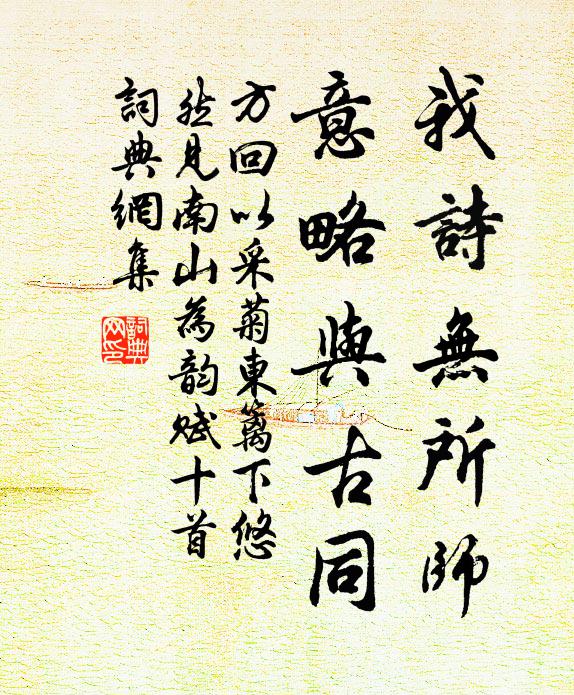 我詩無所師
意略與古同
方回以采菊東籬下悠
然見南山為韵賦十首
詞典網集
詞典
网印